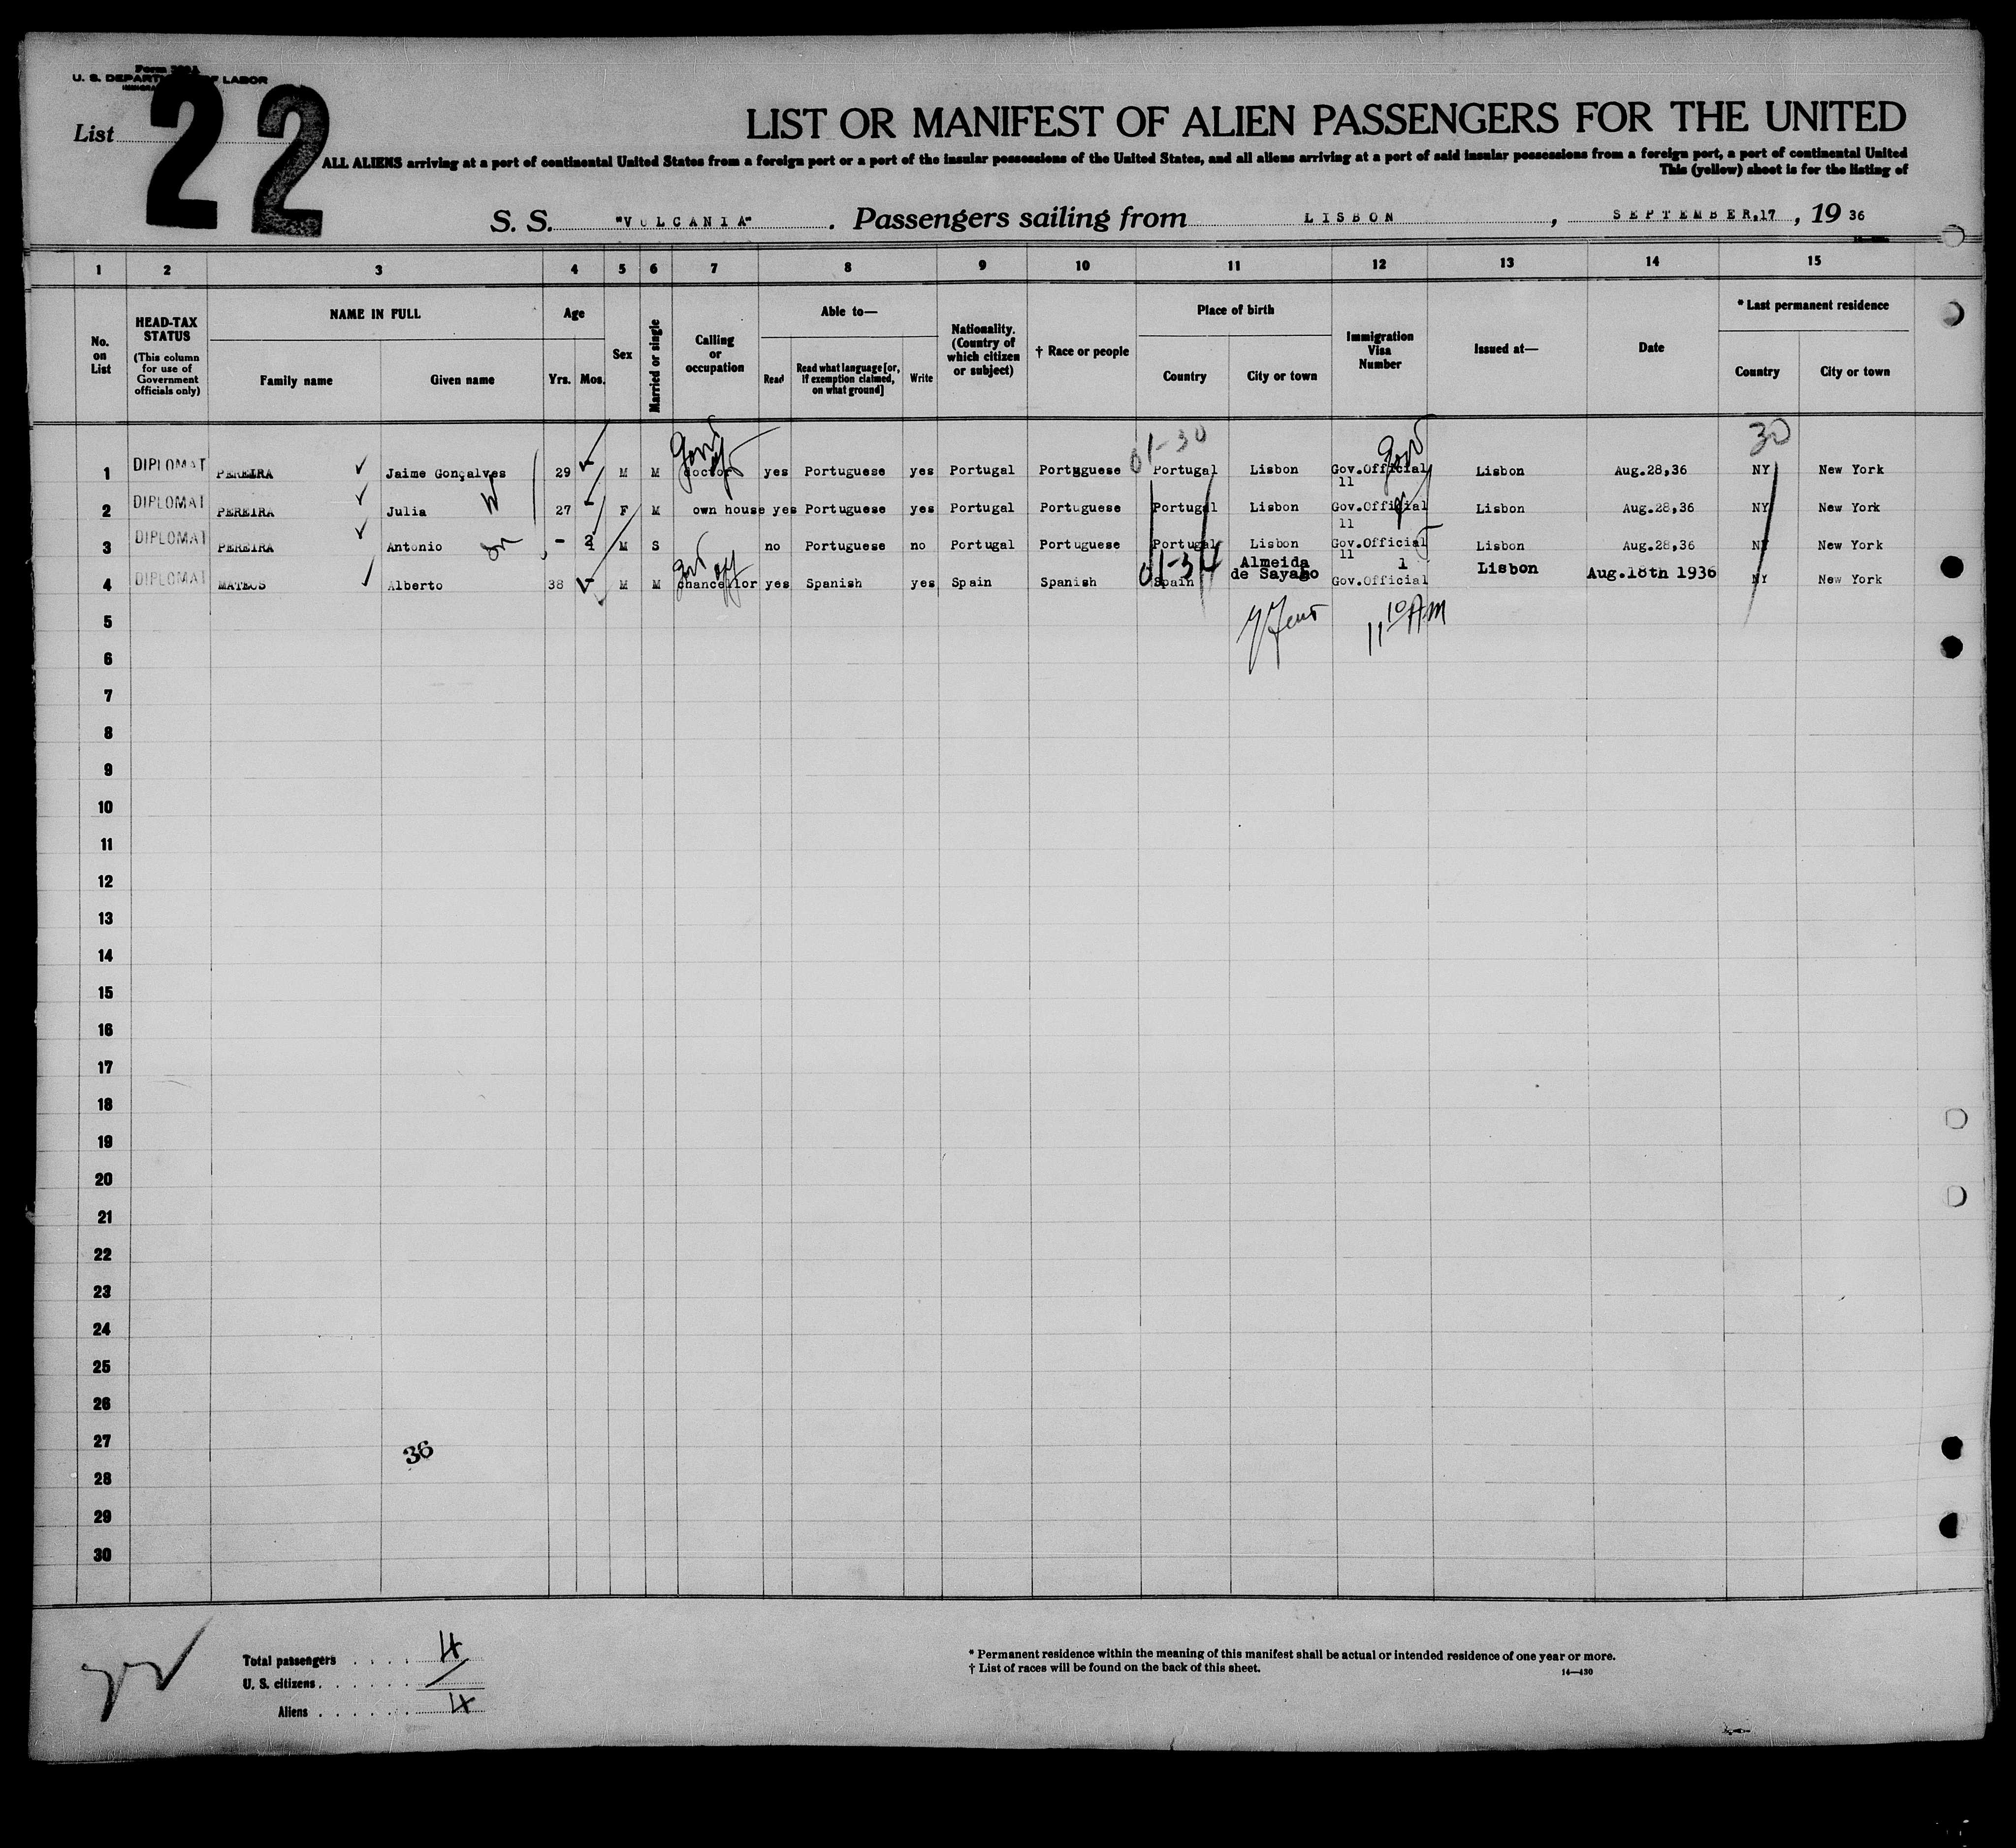 U. S. DEPARTMENT OF LABOR
List 22
LIST OR MANIFEST OF ALIEN PASSENGERS FOR THE UNITED
ALL ALIENS arriving at a port of continental United States from a foreign port or a port of the insular possessions of the United States, and all aliens arriving at a port of said insular possessions from a foreign port, a port of continental United
This (yellow) sheet is for the listing of
S. S. "VULCANIA". Passengers sailing from LISBON, SEPTEMBER.17, 19 36
1 2 3 4 5 6 7 8 9 10 11 12 13 14 15
No. on List
HEAD-TAX STATUS (This column for use of Government officials only)
NAME IN FULL
Family name Given name
Age
Yrs. Mos.
Sex
Married or single
Calling or occupation
Able to—
Read Read what language [or, if exemption claimed, on what ground] Write
Nationality. (Country of which citizen or subject)
† Race or people
Place of birth
Country City or town
Immigration Visa Number
Issued at—
Date
* Last permanent residence
Country City or town
01-30 30
1 DIPLOMAT PEREIRA Jaime Gonçalves 29 M M doctor yes Portuguese yes Portugal Portuguese Portugal Lisbon Gov.Official Lisbon Aug.28,36 NY New York
11
2 DIPLOMAT PEREIRA Julia W 27 F M own house yes Portuguese yes Portugal Portuguese Portugal Lisbon Gov.Official Lisbon Aug.28,36 NY New York
11
3 DIPLOMAT PEREIRA Antonio - M S no Portuguese no Portugal Portuguese Portugal Lisbon Gov.Official Lisbon Aug.28,36 NY New York
11
01-34
4 DIPLOMAT MATEOS Alberto 38 M M chancellor yes Spanish yes Spain Spanish Spain Almeida de Sayago 1 Gov.Official Lisbon Aug.18th 1936 NY New York
5 11 10 AM
6
7
8
9
10
11
12
13
14
15
16
17
18
19
20
21
22
23
24
25
26
27 36
28
29
30
Total passengers . . . . 4
U. S. citizens . . . . . . /
Aliens . . . . . . 4
* Permanent residence within the meaning of this manifest shall be actual or intended residence of one year or more.
† List of races will be found on the back of this sheet.
14—430